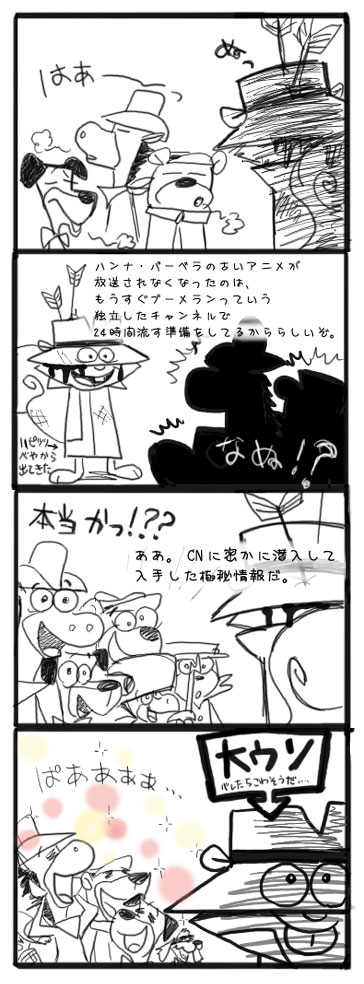 はあー
ぬっ
ハンナ・バーベラの古いアニメが
放送されなくなったのは、
もうすぐブーメランっていう
独立したチャンネルで
24時間流す準備をしてるかららしいぞ。
べやから
出てきた
なぬ!?
本当かっ!??
ああ。CNに密かに潜入して
入手した極秘情報だ。
ぱあああぁ…
大ウソ
バレたらこわそうだ….